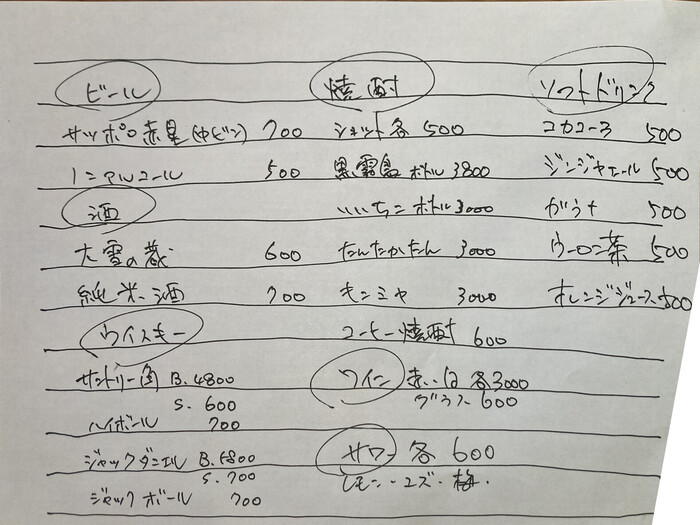 ビール
サッポロ赤星(中ビン) 700
ノンアルコール 500
酒
大雪の蔵 600
純米酒 700
ウイスキー
サントリー角 B. 4800
S. 600
ハイボール 700
ジャックダニエル B. 5800
S. 700
ジャックボール 700
焼酎
ショット各 500
黒霧島 ボトル 3800
いいちこ ボトル 3000
たんたかたん 3000
キンミヤ 3000
コーヒー焼酎 600
ワイン 赤・白 各3000
グラス 600
サワー 各 600
レモン・ユズ・梅・
ソフトドリンク
コカコーラ 500
ジンジャエール 500
ガラナ 500
ウーロン茶 500
オレンジジュース 500